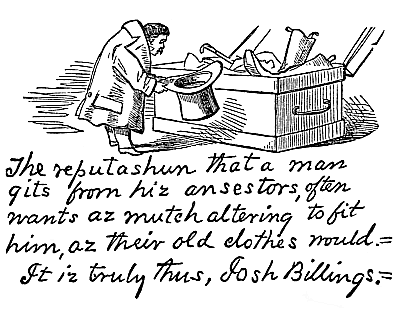 The reputashun that a man
gits from hiz ansestors, often
wants az mutch altering to fit
him, az their old clothes would.=
It iz truly thus, Josh Billings.=